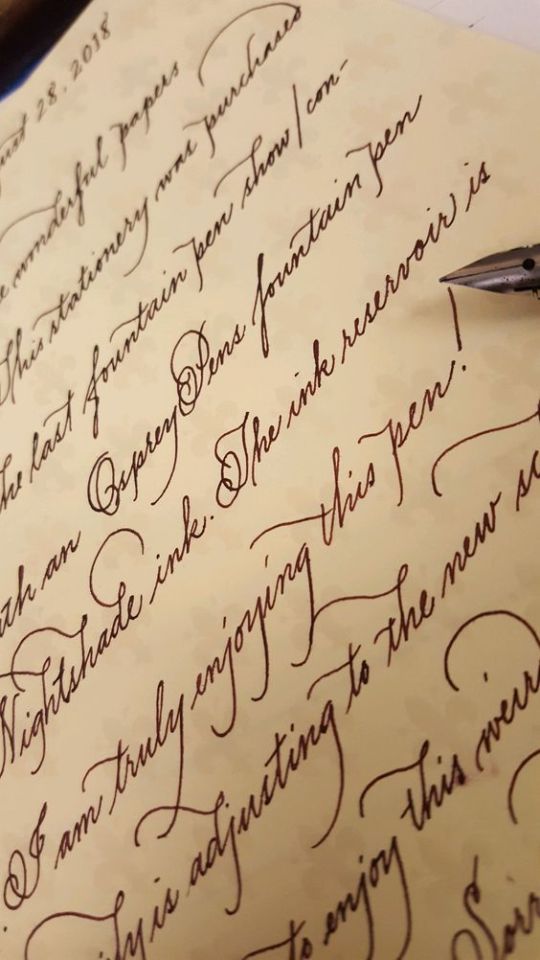 28, 2018
wonderful papers
This stationery was purchased
the last fountain pen show/con-
with an Osprey Pens fountain pen
Nightshade ink. The ink reservoir is
I am truly enjoying this pen!
is adjusting to the new
to enjoy this